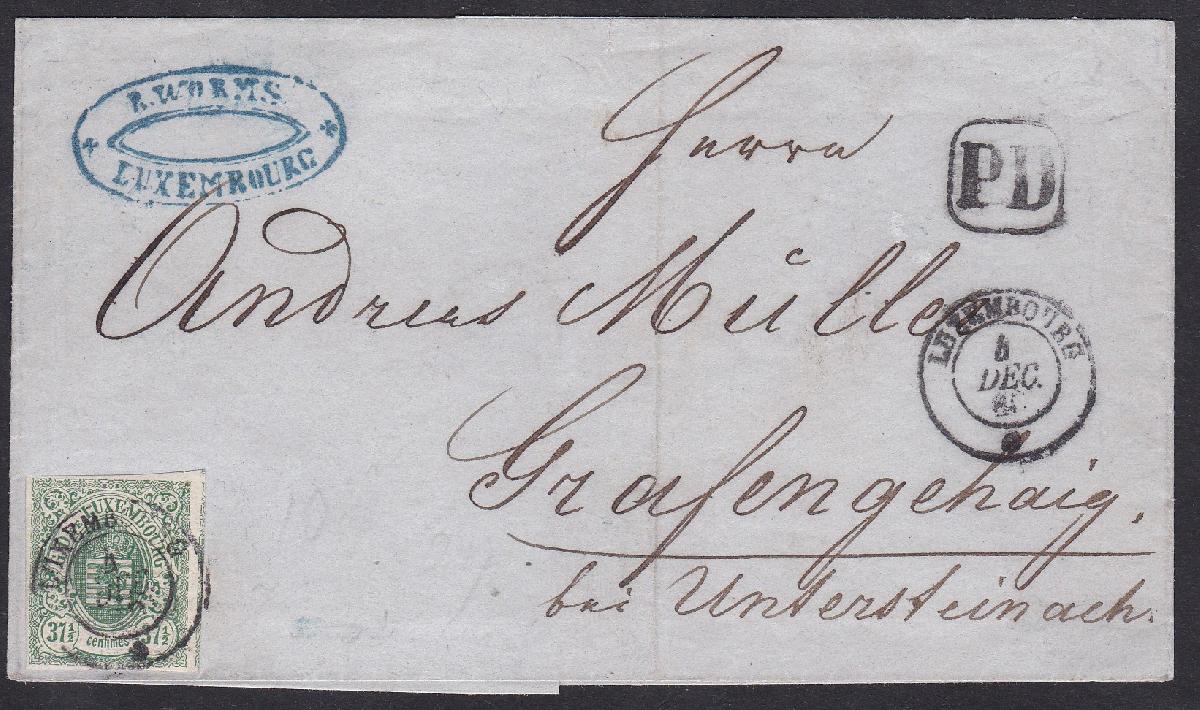 R. WORMS
LUXEMBOURG
Herrn
PD
Andreas Müller
LUXEMBOURG
5
DEC.
Grafengehaig.
bei Untersteinach.
LUXEMBOURG
37½ 37½
centimes